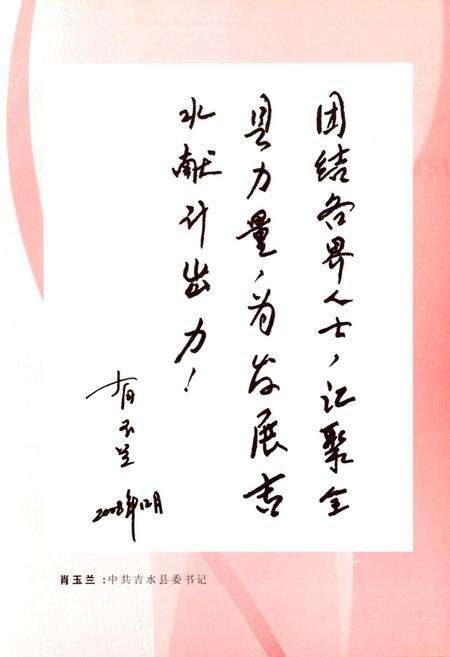 团结各界人士，汇聚全
县力量，为发展吉
水献计出力！
肖玉兰
2008年12月
肖玉兰：中共吉水县委书记